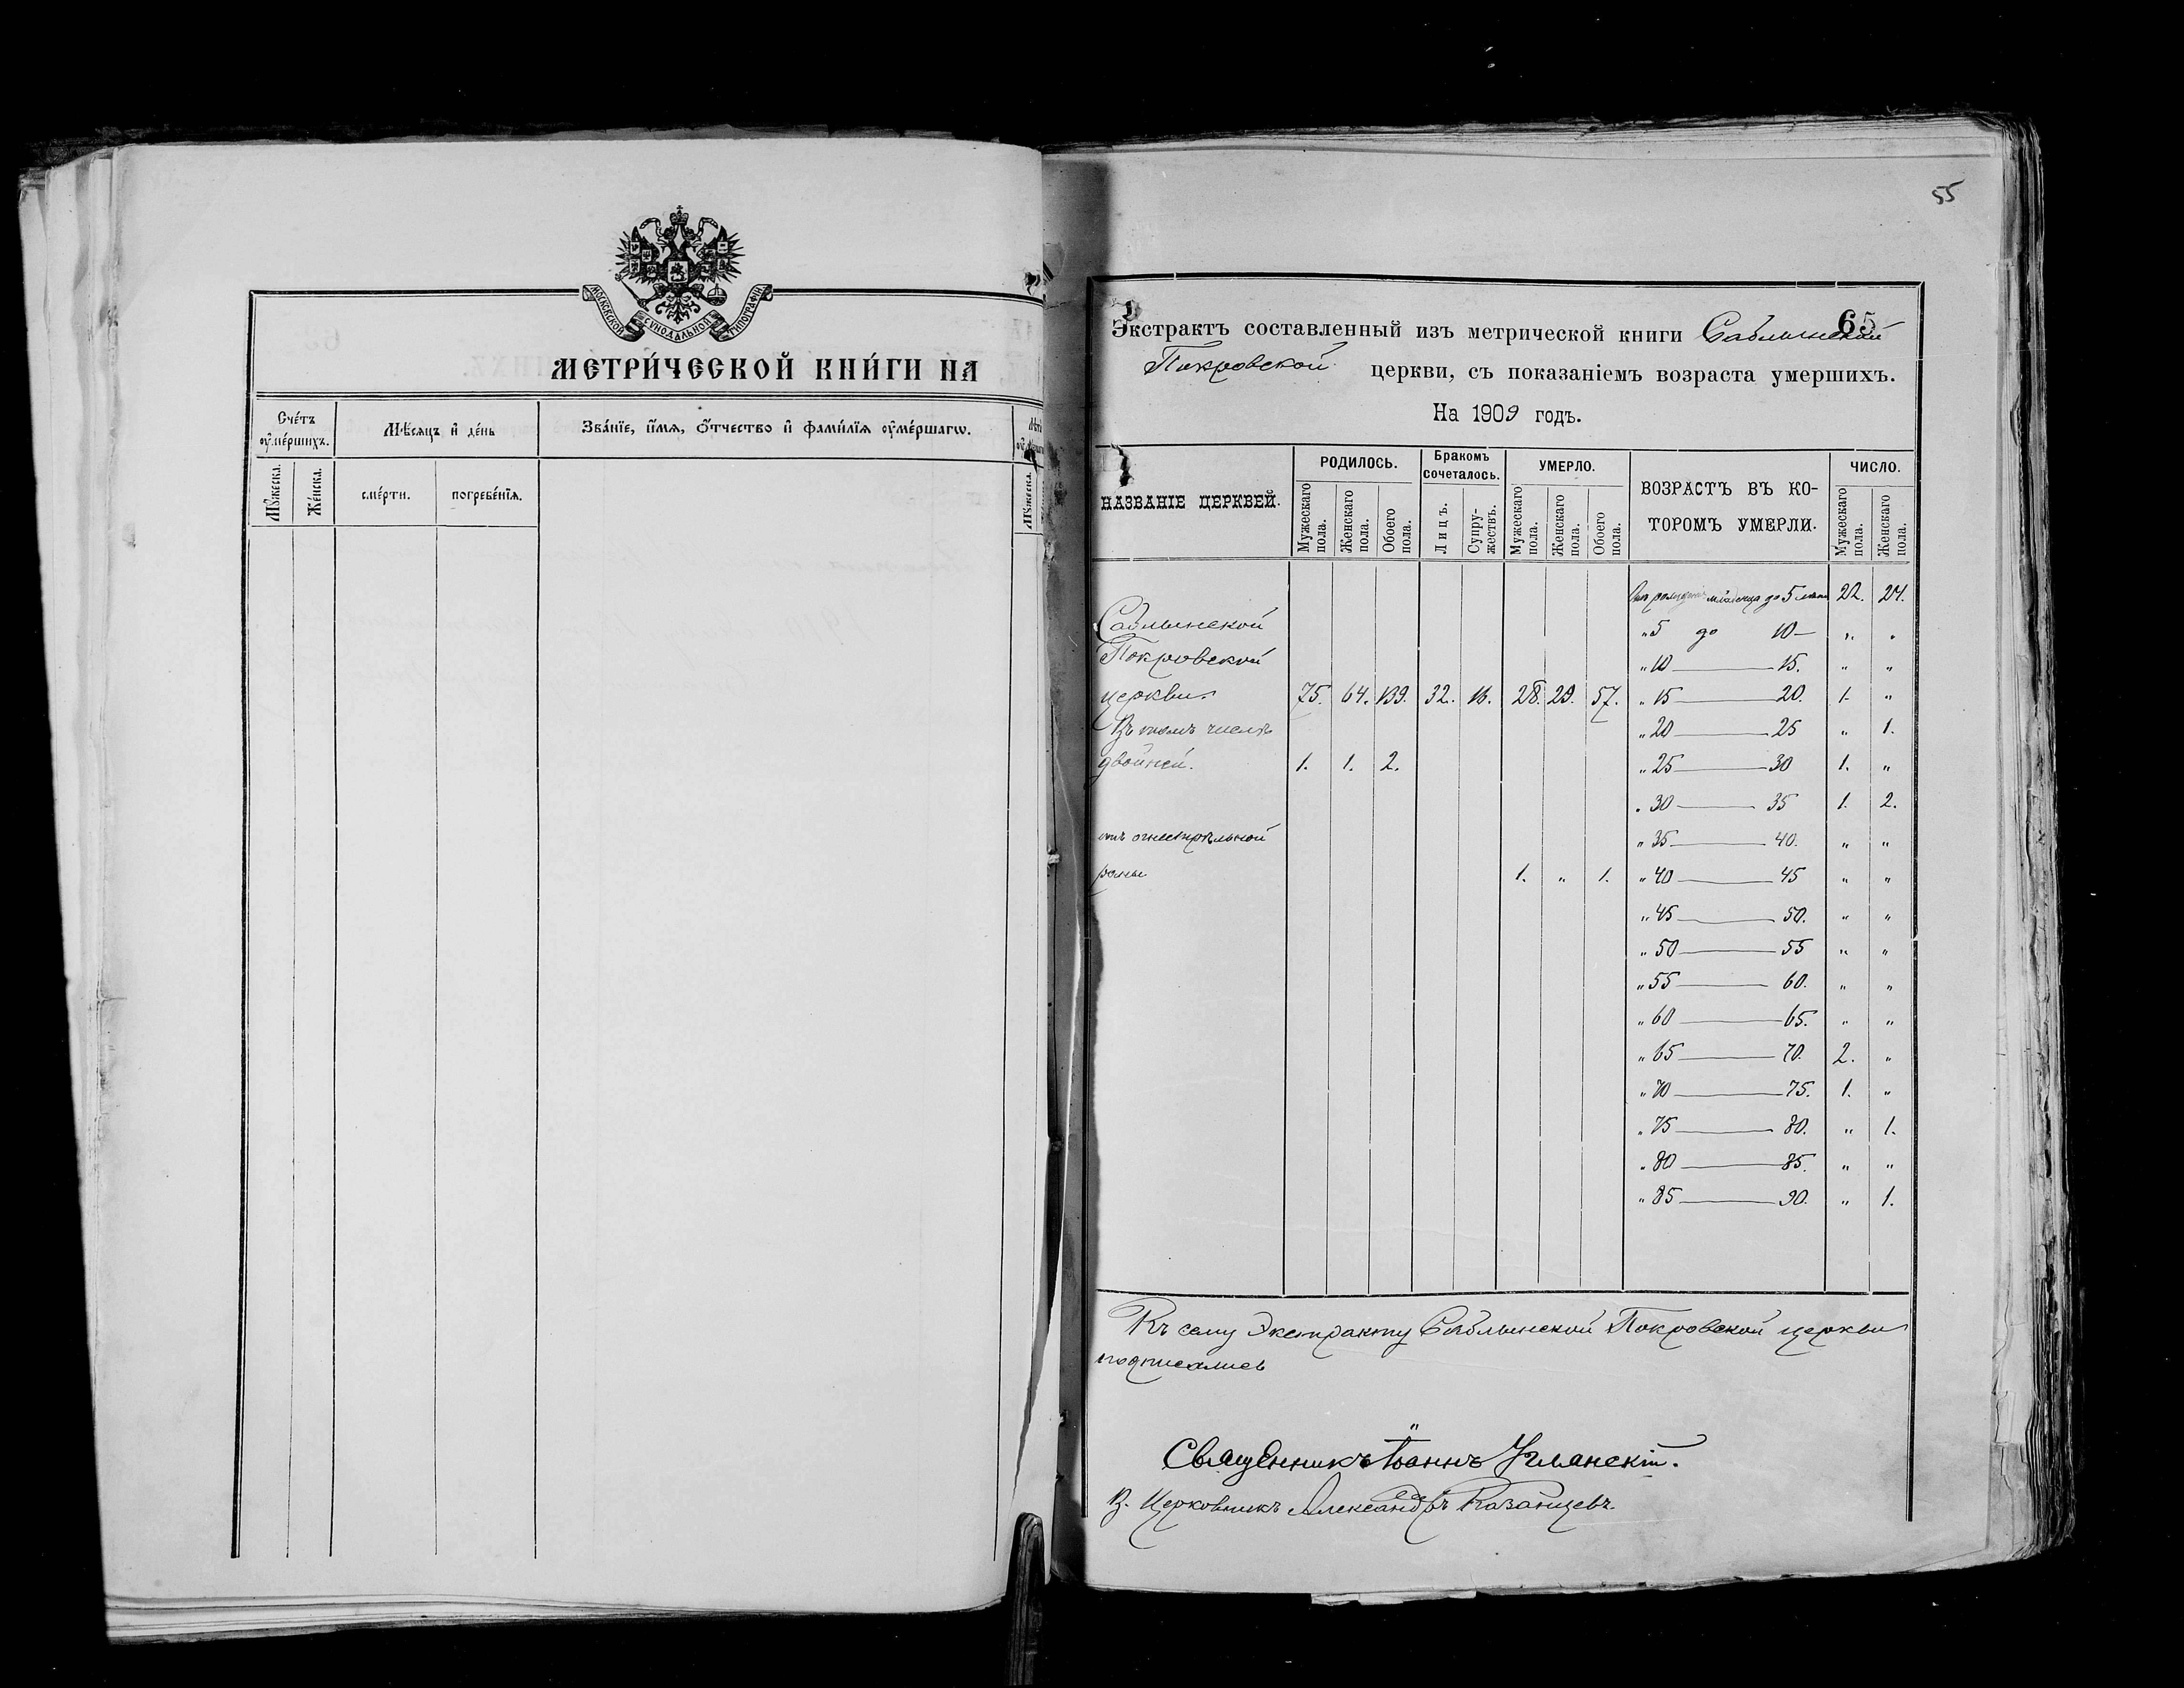 55
МОСКОВСКОЙ СѴНОДАЛЬНОЙ ТИПОГРАФІИ
МЕТРИ́ЧЕСКОЙ КНИ́ГИ НА
Сче́тъ ᲂу҆ме́ршихъ.
Мѣ́сяцъ и҆ де́нь
Зва́нїе, и҆́мя, ѻ҆́тчество и҆ фами́лїя ᲂу҆ме́ршагѡ.
Мꙋ́жеска.
Же́нска.
сме́рти.
погребе́нїя.
Мꙋ́жеска.
65
Экстрактъ составленный изъ метрической книги Саблынской
Покровской церкви, съ показаніемъ возраста умершихъ.
На 1909 годъ.
НАЗВАНІЕ ЦЕРКВЕЙ.
РОДИЛОСЬ.
Бракомъ сочеталось.
УМЕРЛО.
ВОЗРАСТЪ ВЪ КО-
ТОРОМЪ УМЕРЛИ.
ЧИСЛО.
Мужескаго пола.
Женскаго пола.
Обоего пола.
Лицъ.
Супру-жествъ.
Мужескаго пола.
Женскаго пола.
Обоего пола.
Мужескаго пола.
Женскаго пола.
младенца до 5 22. 24.
Саблынской
„ 5 до 10 — „ „
Покровской
„ 10 — 15. „ „
церкви 75. 64. 139. 32. 16. 28. 29. 57. „ 15 — 20. 1. „
Въ томъ числѣ
„ 20 — 25 „ 1.
двойней. 1. 1. 2. „ 25 — 30 1. „
„ 30 — 35 1. 2.
отъ огнестрѣльной
„ 35 — 40. „ „
раны 1. „ 1. „ 40 — 45 „ „
„ 45 — 50. „ „
„ 50 — 55 „ „
„ 55 — 60. „ „
„ 60 — 65. „ „
„ 65 — 70. 2. „
„ 70 — 75. 1. „
„ 75 — 80. „ 1.
„ 80 — 85. „ „
„ 85 — 90. „ 1.
Къ сему Экстракту Саблынской Покровской церкви
подписались
Священникъ Іоаннъ Углянскій.
В. Церковникъ Александръ Казанцевъ.